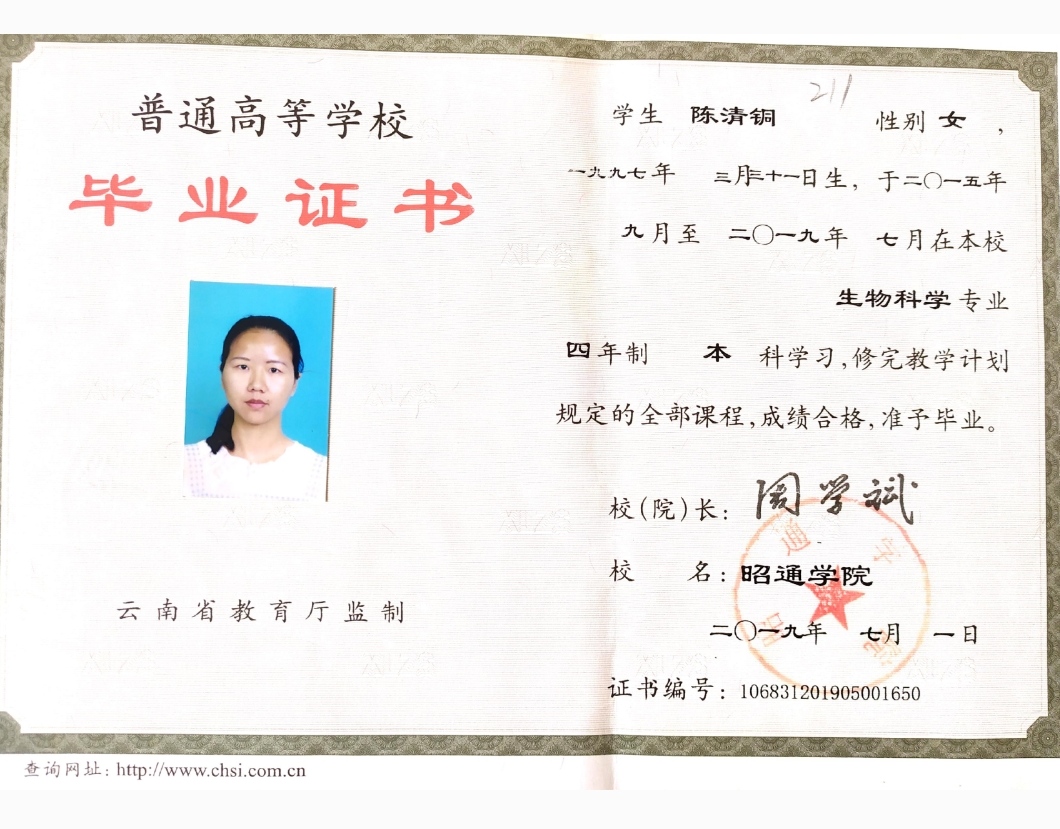 普通高等学校
毕业证书
云南省教育厅监制
211
学生 陈清铜 性别 女 ,
一九九七年 三月三十一日生, 于二〇一五年
九月至 二〇一九年 七月在本校
生物科学 专业
四年制 本 科学习, 修完教学计划
规定的全部课程, 成绩合格, 准予毕业。
校(院)长: 周学斌
校 名: 昭通学院
二〇一九年 七月 一日
证书编号: 106831201905001650
查询网址: http://www.chsi.com.cn